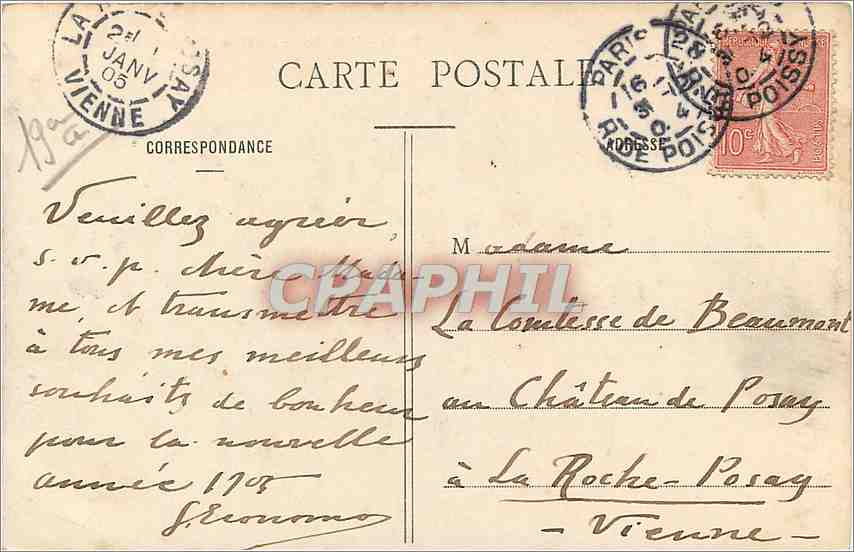 LA ROCHE POSAY
2
JANV
05
VIENNE
CARTE POSTALE
PARIS
16
R. DE POISSY
POISSY
REPUBLIQUE FRANÇAISE
10c
POSTES
19
CORRESPONDANCE
ADRESSE
Veuillez agréer,
s. v. p. chère Mada-
me, et transmettre
à tous mes meilleurs
souhaits de bonheur
pour la nouvelle
année 1905
G. Economo
Madame
La Comtesse de Beaumont
au Château de Posay
à La Roche-Posay
- Vienne -
CPAPHIL